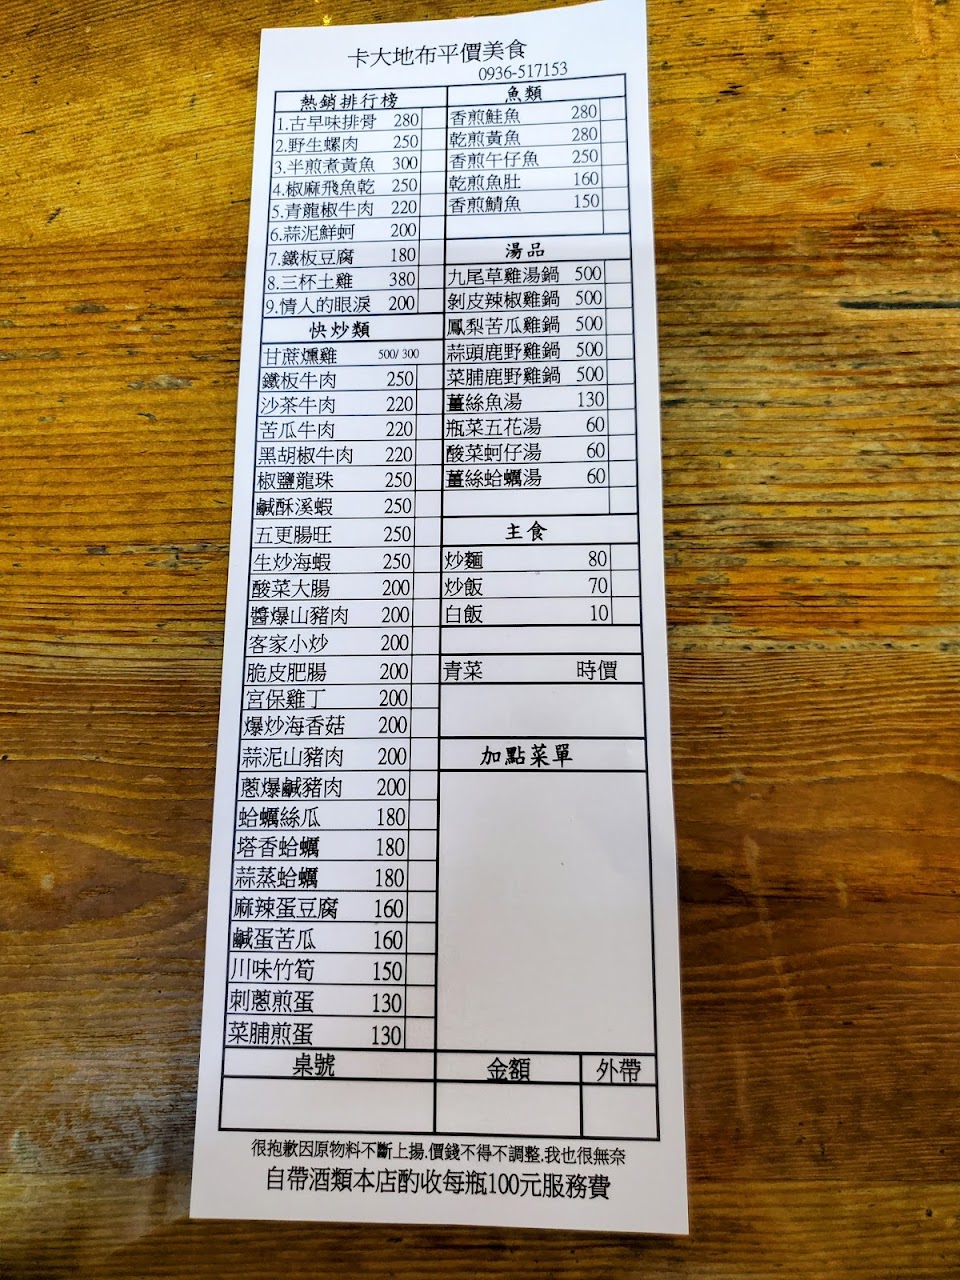 卡大地布平價美食
0936-517153
熱銷排行榜
1.古早味排骨 280
2.野生螺肉 250
3.半煎煮黃魚 300
4.椒麻飛魚乾 250
5.青龍椒牛肉 220
6.蒜泥鮮蚵 200
7.鐵板豆腐 180
8.三杯土雞 380
9.情人的眼淚 200
快炒類
甘蔗燻雞 500/300
鐵板牛肉 250
沙茶牛肉 220
苦瓜牛肉 220
黑胡椒牛肉 220
椒鹽龍珠 250
鹹酥溪蝦 250
五更腸旺 250
生炒海蝦 250
酸菜大腸 200
醬爆山豬肉 200
客家小炒 200
脆皮肥腸 200
宮保雞丁 200
爆炒海香菇 200
蒜泥山豬肉 200
蔥爆鹹豬肉 200
蛤蠣絲瓜 180
塔香蛤蠣 180
蒜蒸蛤蠣 180
麻辣蛋豆腐 160
鹹蛋苦瓜 160
川味竹筍 150
刺蔥煎蛋 130
菜脯煎蛋 130
魚類
香煎鮭魚 280
乾煎黃魚 280
香煎午仔魚 250
乾煎魚肚 160
香煎鯖魚 150
湯品
九尾草雞湯鍋 500
剝皮辣椒雞鍋 500
鳳梨苦瓜雞鍋 500
蒜頭鹿野雞鍋 500
菜脯鹿野雞鍋 500
薑絲魚湯 130
瓶菜五花湯 60
酸菜蚵仔湯 60
薑絲蛤蠣湯 60
主食
炒麵 80
炒飯 70
白飯 10
青菜 時價
加點菜單
桌號 金額 外帶
很抱歉因原物料不斷上揚.價錢不得不調整.我也很無奈
自帶酒類本店酌收每瓶100元服務費